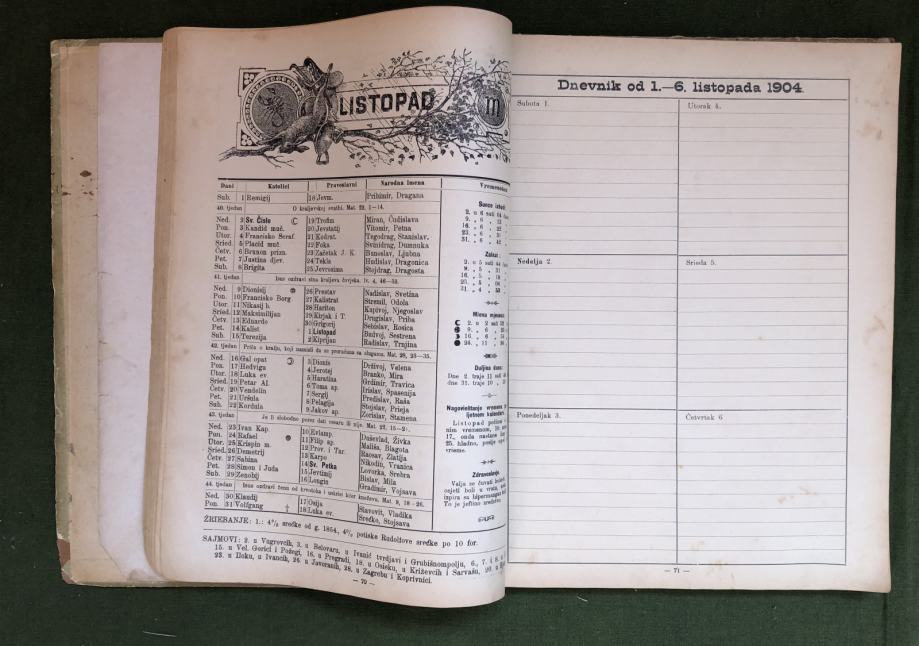 LISTOPAD
Dani Katolici Pravoslavni Narodna imena
Sub. 1 Remigij 18 Jevm. Pribimir, Dragana
40. tjedan O kraljevskoj svatbi. Mat. 22, 1—14.
Ned. 2 Sv. Čislo 19 Trofim Miran, Čudislava
Pon. 3 Kandid muč. 20 Jevstatij Vitomir, Petna
Utor. 4 Francisko Seraf. 21 Kodrat. Tugodrag, Stanislav.
Sried. 5 Placid muč. 22 Foka Svinidrag, Dumnuka
Četv. 6 Brunon prizn. 23 Začetak J. K. Bunoslav, Ljubna
Pet. 7 Justina djev. 24 Tekla Hudislav, Dragonica
Sub. 8 Brigita 25 Jevrosima Stojdrag, Dragosta
41. tjedan Isus ozdravi sina kraljeva čovjeka. Iv. 4, 46—53.
Ned. 9 Dionisij 26 Prestav Nadislav, Svetina
Pon. 10 Francisko Borg 27 Kalistrat Stremil, Odola
Utor. 11 Nikasij b. 28 Hariton Kupivoj, Njegoslav
Sried. 12 Maksimilijan 29 Kirjak i T. Drugislav, Priba
Četv. 13 Eduardo 30 Grigorij Sebislav, Rosica
Pet. 14 Kalist 1 Listopad Budvoj, Sestrena
Sub. 15 Terezija 2 Kiprijan Radislav, Trnjina
42. tjedan Priča o kralju, koji nasnisli da se proračuna sa slugama. Mat. 28, 23—35.
Ned. 16 Gal opat 3 Dionis Drživoj, Velena
Pon. 17 Hedviga 4 Jerotej Branko, Mira
Utor. 18 Luka ev. 5 Haratina Grdimir, Travica
Sried. 19 Petar Al. 6 Toma ap. Irislav, Spasenija
Četv. 20 Vendelin 7 Sergij Predislav, Raša
Pet. 21 Uršula 8 Pelagija Stojslav, Prieja
Sub. 22 Kordula 9 Jakov ap. Zorislav, Stamena
43. tjedan Je li slobodno porez dati cesaru ili nije. Mat. 22, 15—21.
Ned. 23 Ivan Kap. 10 Evlamp. Duševlad, Živka
Pon. 24 Rafael 11 Filip ap. Mališa, Blagota
Utor. 25 Krispin m. 12 Prov. i Tar. Racsav, Zlatija
Sried. 26 Demetrij 13 Karpo Nikodin, Vranica
Četv. 27 Sabina 14 Sv. Petka Lovorka, Srebra
Pet. 28 Simon i Juda 15 Jevtimij Bislav, Mila
Sub. 29 Zenobij 16 Longin Gradimir, Vojsava
44. tjedan Isus ozdravi ženu od krvotoka i uskrisi kćer kneževa. Mat. 9, 18—26.
Ned. 30 Klaudij 17 Osija Slavovit, Vladika
Pon. 31 Volfgang † 18 Luka ev. Srećko, Stojsava
ŽRIEBANJE: 1.: 4% srećke od g. 1854., 4% potiske Rudolfove srećke po 10 for.
SAJMOVI: 2. u Vugrovcih, 3. u Belovaru, u Ivanić tvrdjavi i Grubišnompolju, 6., 7. i 8. u
15. u Vel. Gorici i Požegi, 16. u Pregradi, 18. u Osieku, u Križevcih i Sarvašu, 20. u
23. u Iloku, u Ivancih, 26. u Jovoranih, 28. u Zagrebu i Koprivnici.
— 70 —
Vremenoslov
Sunce izlazi:
2. u 6 sati
9. „ 6 „
16. „ 6 „
23. „ 6 „
31. „ 6 „
Zalazi:
2. u 5 sati 44
9. „ 5 „ 31
16. „ 5 „
25. „ 5 „ 04
31. „ 4 „ 53
Miena mjeseca:
2. u 2 sati 52
9. „ 6 „
16. „ 6 „
24. „ 11 „
Duljina dana:
Dne 2. traje 11 sati
dne 31. traje 10 „
Nagoviještanje vremena po
ljetnom kalendaru.
Listopad počima
nim vremenom, 10.
17., onda nastane
25. hladno, poslije opet
vrieme.
Zdravoslovje.
Valja se čuvati
osjeti boli u vratu,
izpira sa hipermangan
To je jeftino sredstvo.
Dnevnik od 1.—6. listopada 1904.
Subota 1.
Utorak 4.
Nedelja 2.
Srieda 5.
Ponedeljak 3.
Četvrtak 6
— 71 —